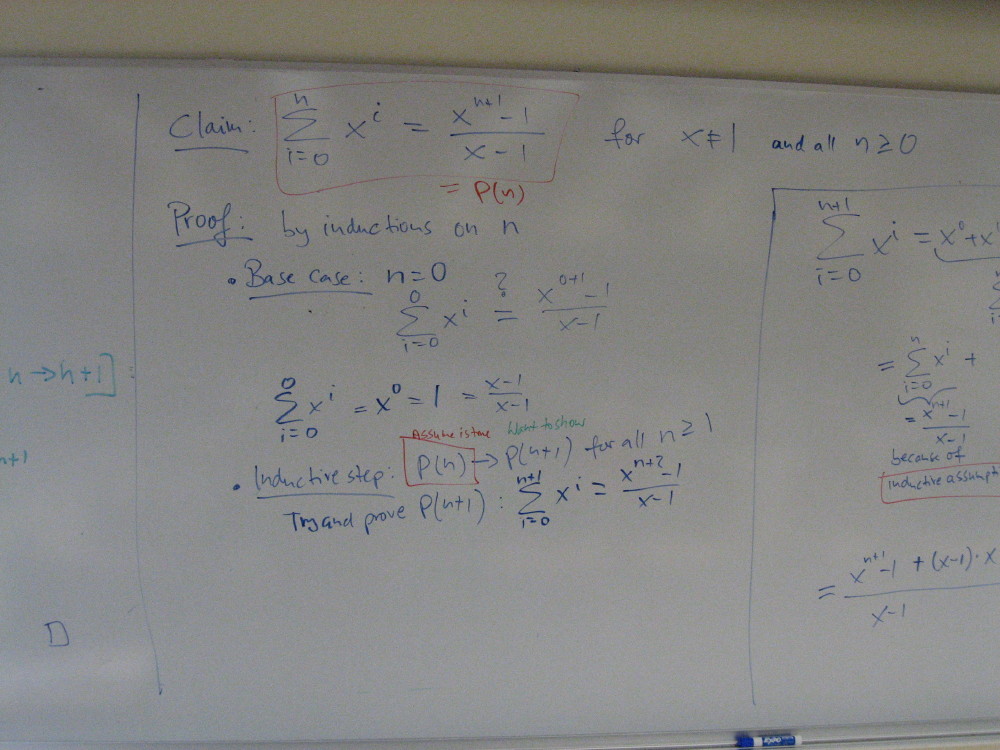 n → n+1] :
n+1
D
Claim: ∑_{i=0}^{n} x^i = (x^{n+1} - 1)/(x - 1) for x ≠ 1 and all n ≥ 0
= P(n)
Proof: by inductions on n
• Base case: n=0
∑_{i=0}^{0} x^i ?= (x^{0+1} - 1)/(x-1)
∑_{i=0}^{0} x^i = x^0 = 1 = (x-1)/(x-1)
Assume is true Want to show
• Inductive step: P(n) → P(n+1) for all n ≥ 1
Try and prove P(n+1) : ∑_{i=0}^{n+1} x^i = (x^{n+2} - 1)/(x-1)
∑_{i=0}^{n+1} x^i = x^0 + x
= ∑_{i=0}^{n} x^i +
= (x^{n+1} - 1)/(x-1)
because of
inductive assumpt
= (x^{n+1} - 1 + (x-1)·x)/(x-1)